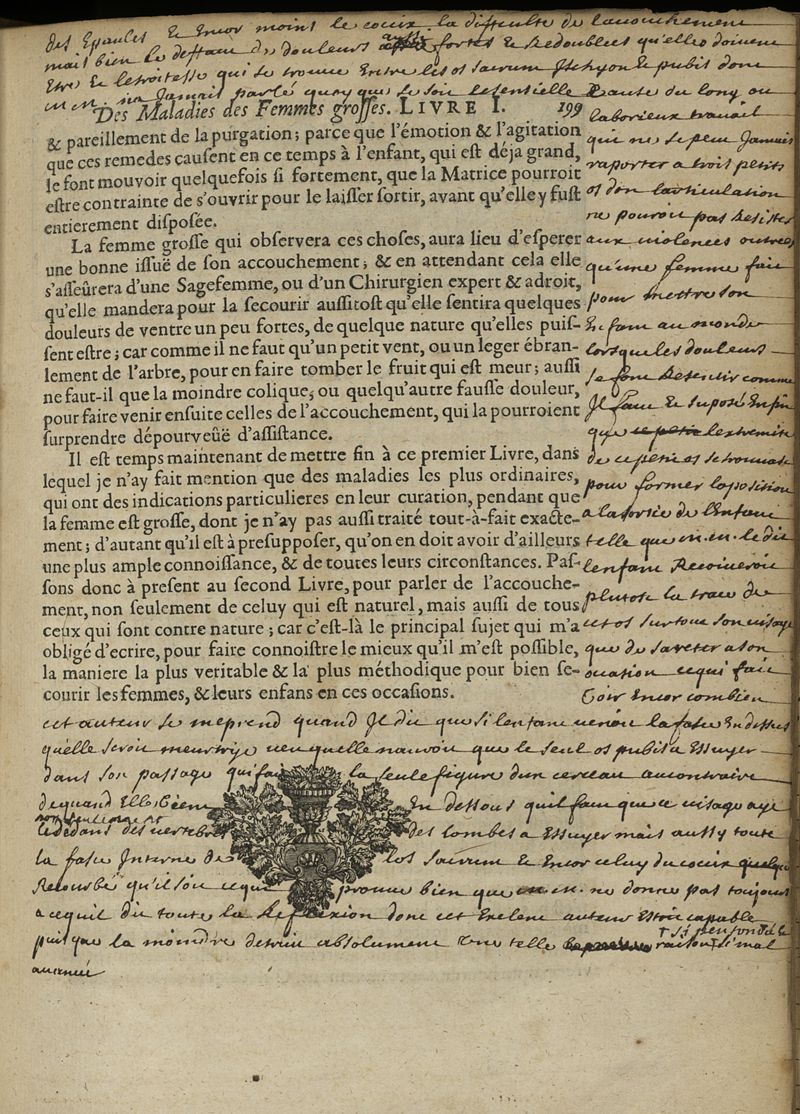 des Epaules & Encor moins le cocix la difficulté de lacouchement
mais bien le deffaut de douleurs aussi fortes & Redoublées quelles doivent
Etre & letroitesse qui se trouve Entre les os sacrum Ischyon & pubis dont
m.m. na Jamais parlé quoy que ce soit lesentielle Cause du long ou
Des Maladies des Femmes grosses. LIVRE I. 199
& pareillement de la purgation; parce que l'émotion & l'agitation
que ces remedes causent en ce temps à l'enfant, qui est déja grand,
le font mouvoir quelquefois si fortement, que la Matrice pourroit
estre contrainte de s'ouvrir pour le laisser sortir, avant qu'elle y fust
entierement disposée.
La femme grosse qui observera ces choses, aura lieu d'esperer
une bonne issuë de son accouchement; & en attendant cela elle
s'asseûrera d'une Sagefemme, ou d'un Chirurgien expert & adroit,
qu'elle mandera pour la secourir aussitost qu'elle sentira quelques
douleurs de ventre un peu fortes, de quelque nature qu'elles puis-
sent estre; car comme il ne faut qu'un petit vent, ou un leger ébran-
lement de l'arbre, pour en faire tomber le fruit qui est meur; aussi
ne faut-il que la moindre colique, ou quelqu'autre fausse douleur,
pour faire venir ensuite celles de l'accouchement, qui la pourroient
surprendre dépourveûë d'assistance.
Il est temps maintenant de mettre fin à ce premier Livre, dans
lequel je n'ay fait mention que des maladies les plus ordinaires,
qui ont des indications particulieres en leur curation, pendant que
la femme est grosse, dont je n'ay pas aussi traité tout-à-fait exacte-
ment; d'autant qu'il est à presupposer, qu'on en doit avoir d'ailleurs
une plus ample connoissance, & de toutes leurs circonstances. Pas-
sons donc à present au second Livre, pour parler de l'accouche-
ment, non seulement de celuy qui est naturel, mais aussi de tous
ceux qui sont contre nature; car c'est-là le principal sujet qui m'a
obligé d'ecrire, pour faire connoistre le mieux qu'il m'est possible,
la maniere la plus veritable & la plus méthodique pour bien se-
courir les femmes, & leurs enfans en ces occasions.
laborieux travail
qui ne se peut Jamais
raporter a trois petits
os don larticulation
ne pouroit pas Resister
aux violences outrees
qu'une femme fait
pour mettre son
Enfant au monde
lorsque les douleurs
se font Resentir comme
Il faut & suposé Enfin
que lextremité
de ce petit os se trouvast
pour former loposition
a la sortie de lEnfant
telle que m.m. le dit
lenfant Recevroit
plutost la trace de
cet os surtout son visage
que de sareter a son
ocation ce qui fait
voir Encor combien
cet auteur se meprend quand Il dit que si lenfant venoit la face En dessus
quelle seroit meurtrie veu quelle nauroit que le seul os pubis a Essuyer
dans son passage qui fait la seule figure dun cerceau au contraire
de quand Elle vient En dessous quil faut que ce visage aye
non seulement
le dedans des vertebres des lombes a Essuyer mais aussy toute
la face Interne de los sacrum & Encor celuy du cocix quelque
Recourbé qu'il soit ce qui prouve bien que m.m. ne donne pas toujours
a ce quil dit toute la Reflexion dont cet Exelent auteur Estoit capable
puis que la moindre detruit absolument Une telle raison si mal
si peu fondée &
avancée